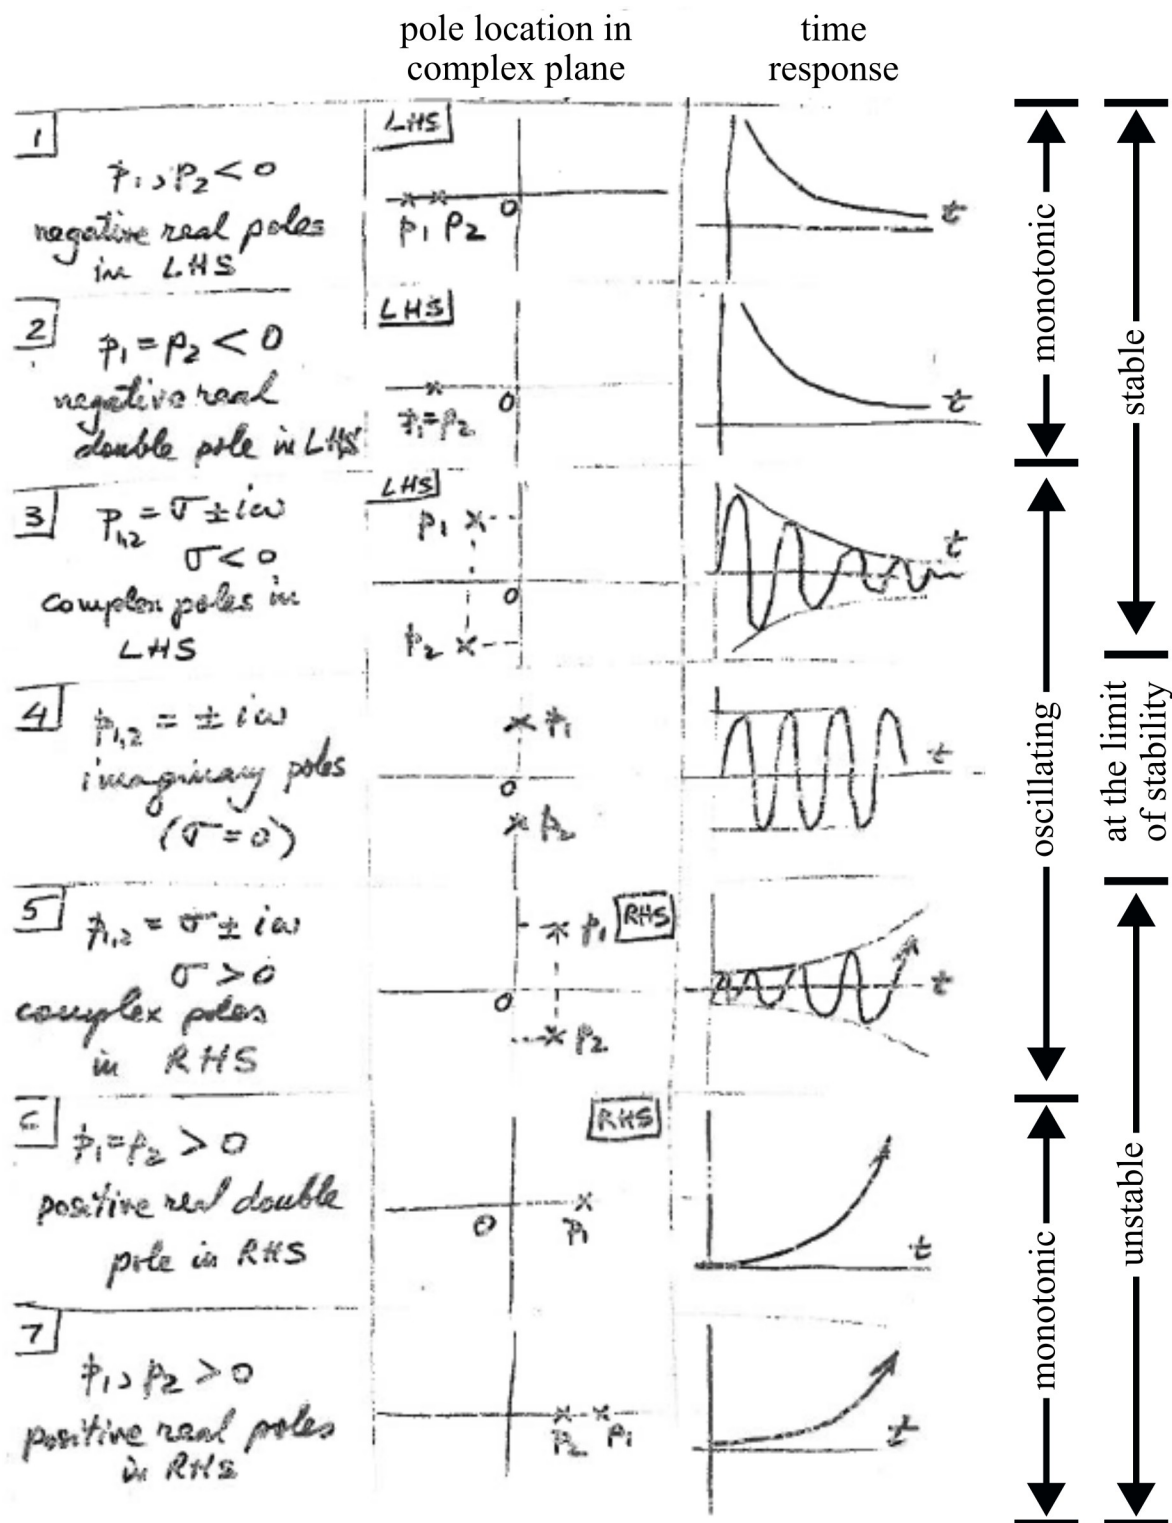 pole location in
complex plane
time
response
1
p₁, p₂ < 0
negative real poles
in LHS
LHS
p₁ p₂
0
t
2
p₁ = p₂ < 0
negative real
double pole in LHS
LHS
p₁=p₂
0
t
3
p₁,₂ = σ ± iω
σ < 0
complex poles in
LHS
LHS
p₁
0
p₂
t
4
p₁,₂ = ± iω
imaginary poles
(σ = 0)
p₁
0
p₂
t
5
p₁,₂ = σ ± iω
σ > 0
complex poles
in RHS
p₁ RHS
0
p₂
t
6
p₁ = p₂ > 0
positive real double
pole in RHS
RHS
0
p₁
t
7
p₁, p₂ > 0
positive real poles
in RHS
p₂ p₁
t
monotonic
oscillating
monotonic
stable
at the limit
of stability
unstable